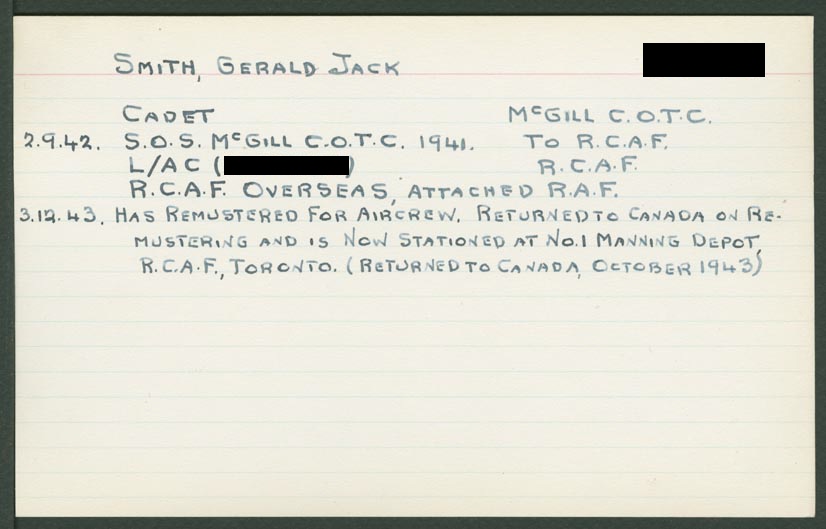 SMITH, GERALD JACK
CADET McGILL C.O.T.C.
2.9.42. S.O.S. McGILL C.O.T.C. 1941. TO R.C.A.F.
L/AC ( ) R.C.A.F.
R.C.A.F. OVERSEAS, ATTACHED R.A.F.
3.12.43. HAS REMUSTERED FOR AIRCREW. RETURNED TO CANADA ON RE-
MUSTERING AND IS NOW STATIONED AT NO.1 MANNING DEPOT,
R.C.A.F., TORONTO. (RETURNED TO CANADA, OCTOBER 1943)